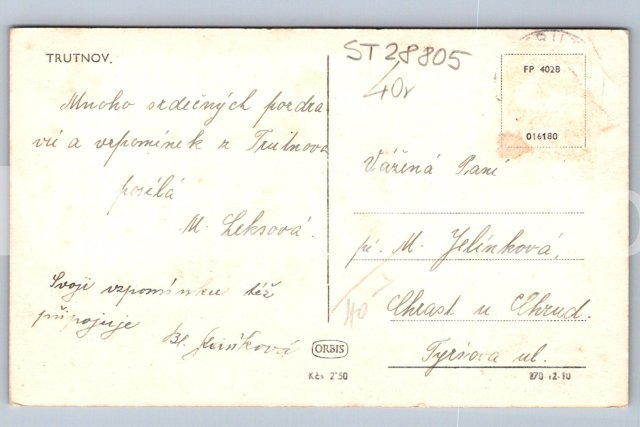 TRUTNOV.
ST 28805
40,-
FP 4028
016180
Mnoho srdečných pozdra
vů a vzpomínek z Trutnova
posílá
M. Leksová.
Svoji vzpomínku též
připojuje
Bl.
Vážená Paní
pí. M. Jelínková,
Chrast u Chrud.
Tyršova ul.
40
ORBIS
Kčs 2'50
270 12-10